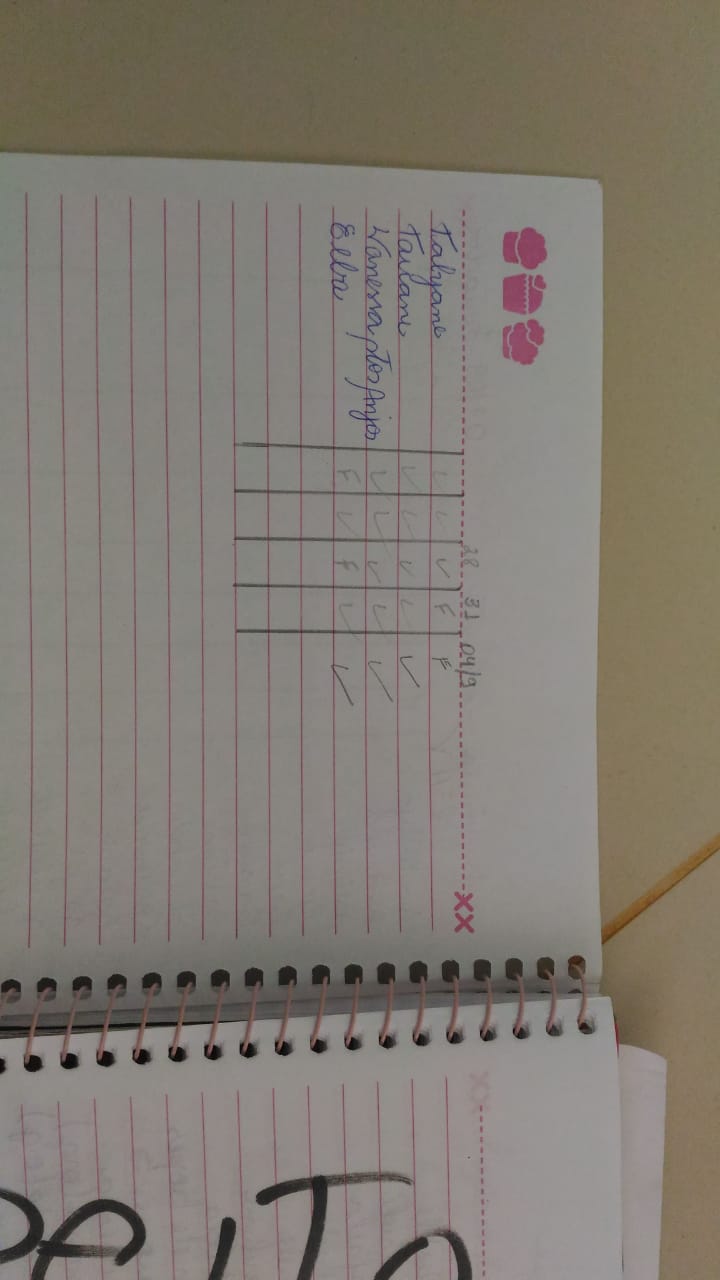 28 31 04/9
Talyane ✓ ✓ ✓ F F
Tailane ✓ ✓ ✓ ✓ ✓
Wanessa dos Anjos ✓ ✓ ✓ ✓ ✓
Elba F ✓ F ✓ ✓